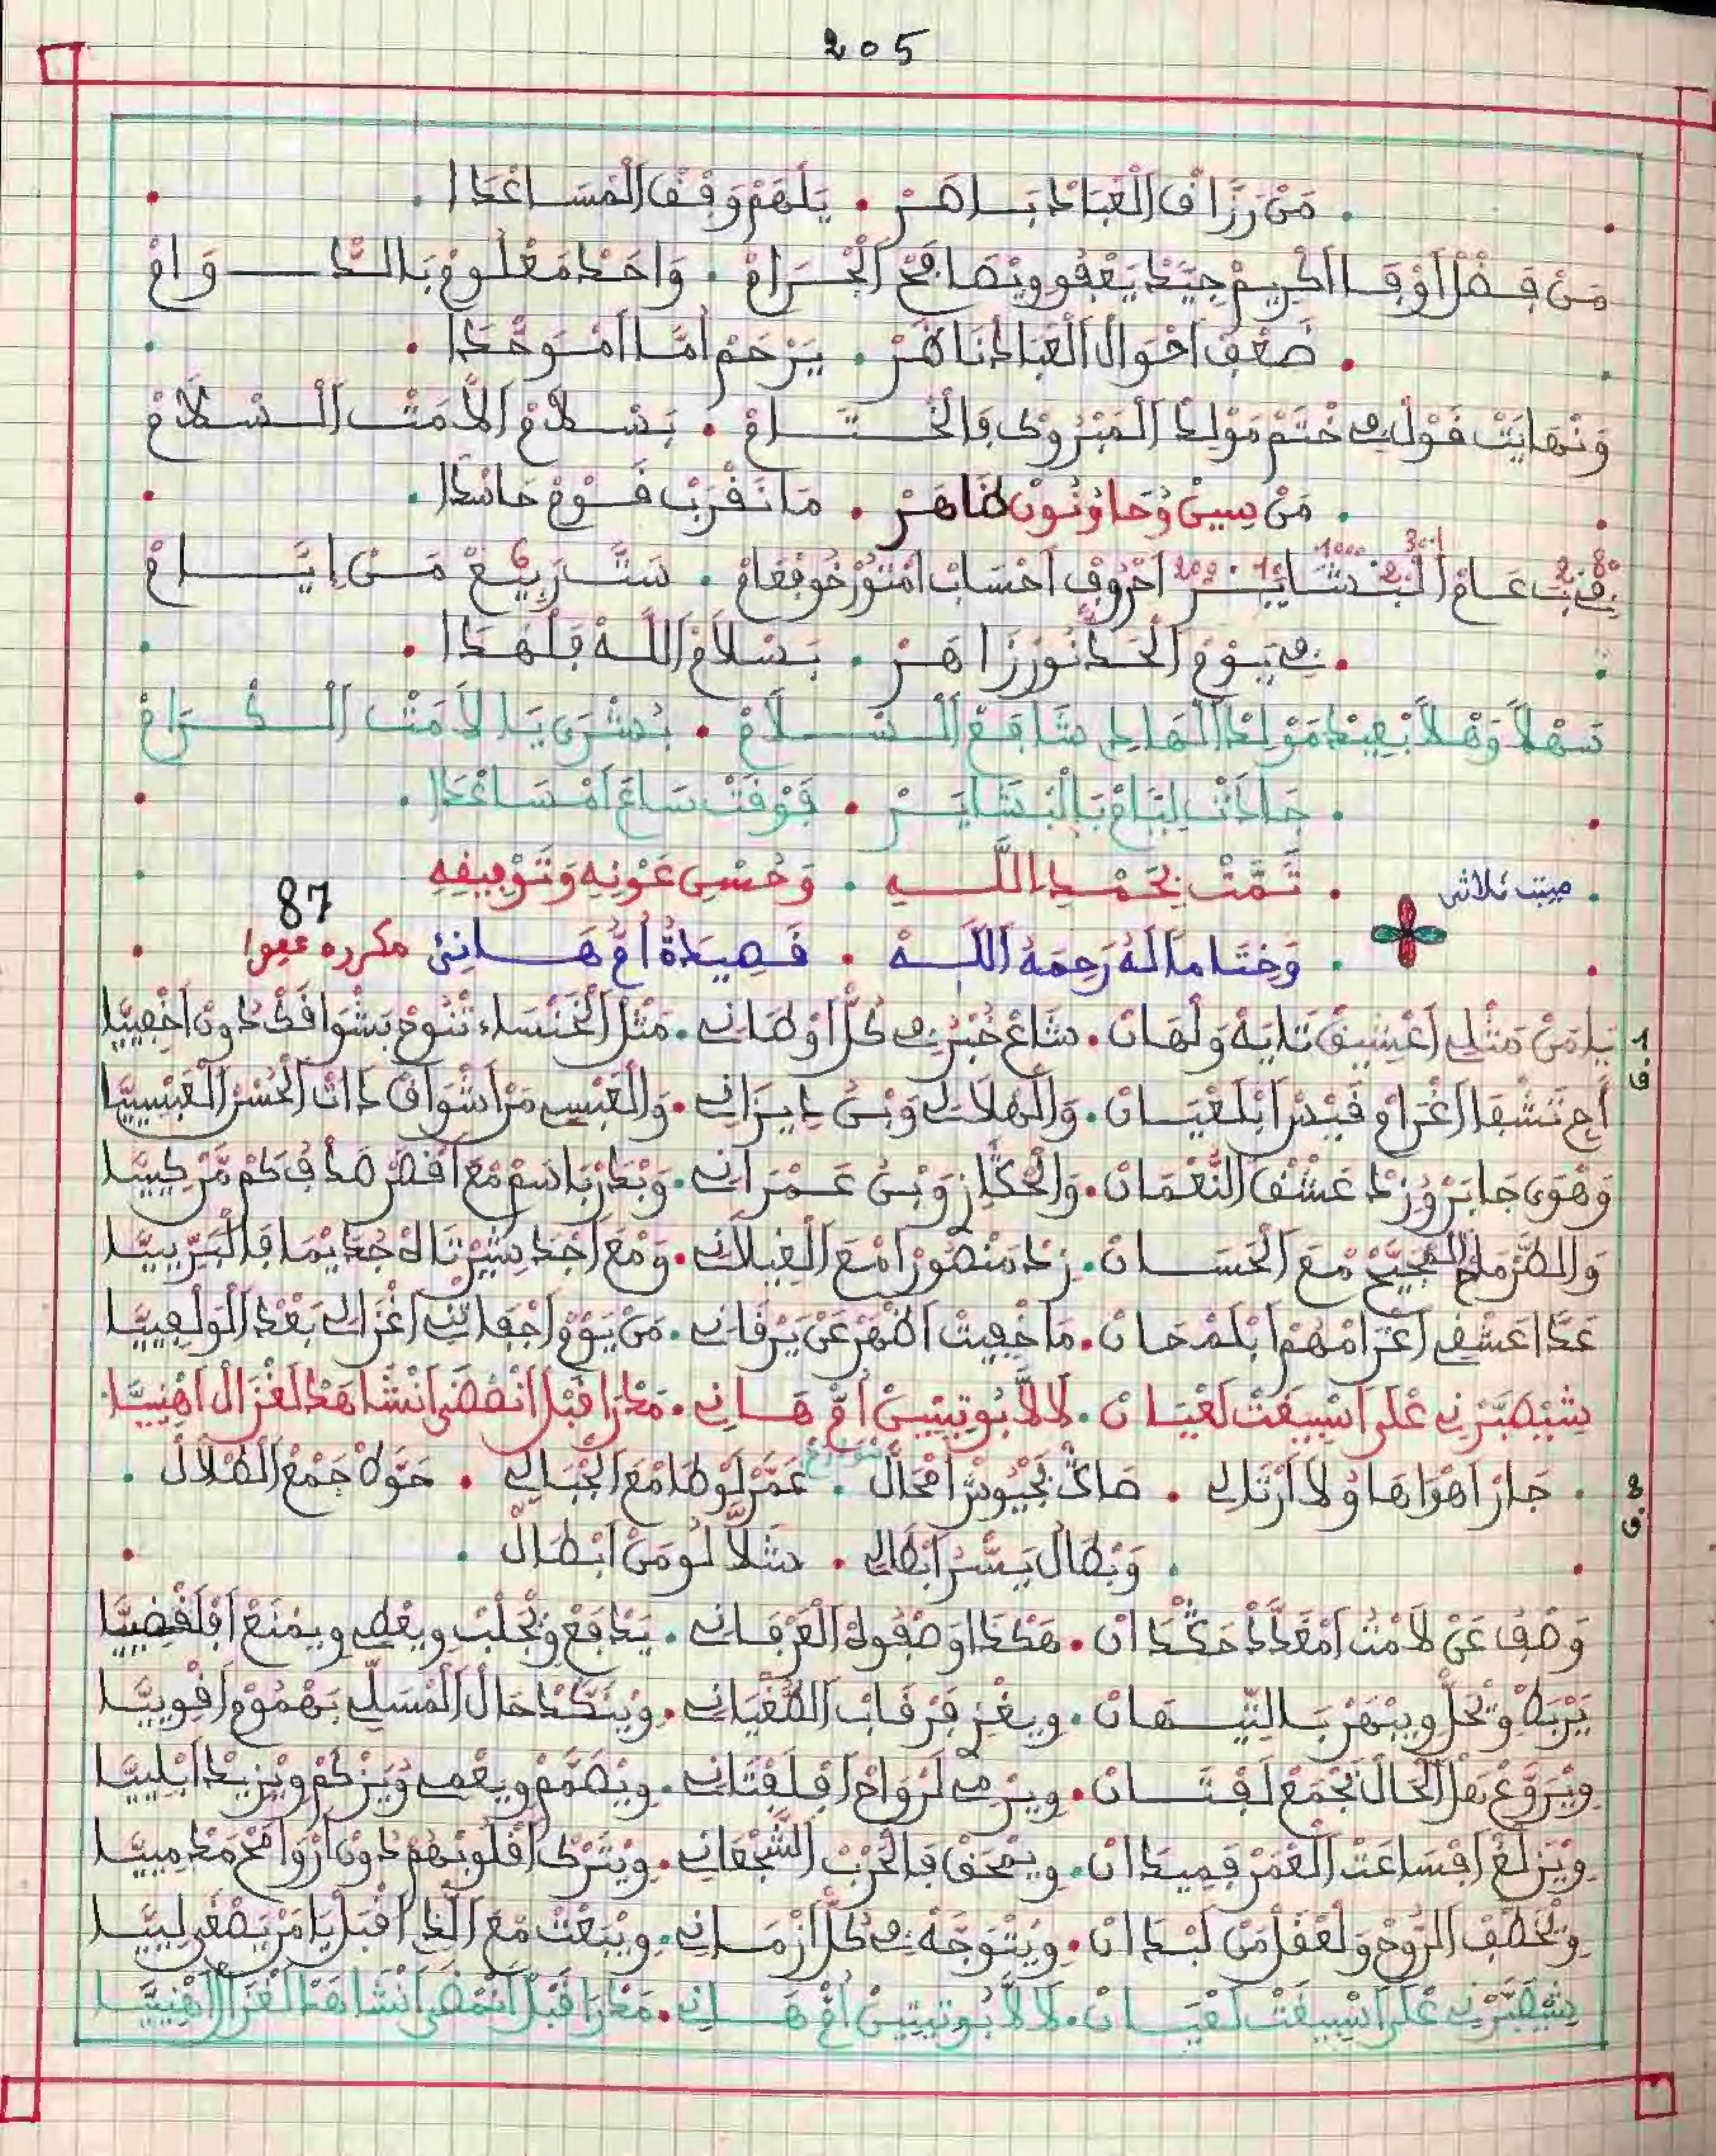 205
مَنْ رَزَّاقْ الْعْبَادْ بَاهَرْ . يَلْهَمْ وَقْفَ الْمْسَاعْدَا
مَنْ فَضْلْ أَوْفَا الْكْرِيمْ جِيَّدْ يَعْفُو وِيْصَافَحْ الْجْرَامْ . وَاحَدْ مَعْلُومْ بَالدْوَامْ
ضَعْفْ احْوَالْ الْعْبَادْ نَاظَرْ . يَرْحَمْ أُمَّا امْوَحْدَا
وَنْهَايَتْ قَوْلِي فِي خْتَمْ مَوْلِدْ الْمَبْرُوكْ فَالْخْتَامْ . بَسْلاَمْ الاَمَتْ السْلاَمْ
مَنْ سِينْ وُحَا وُنُونْ ظَاهَرْ . مَا نَقْرَبْ قَوْمْ حَاسْدَا
فِي عَامْ احْرُوفْ احْسَابْ امْتُورْخُو فْعَامْ . سَتَّ رْبِيعْ مَنْ اِيَّامْ
فِي يَوْمْ الْحَدْ نُورْ زَاهَرْ . بَسْلاَمْ اللَّهْ فَلْهَدَا
سَهْلاً وَهْلاً بْعِيدْ مَوْلِدْ الْهَادِي شَافَعْ السْلاَمْ . بُشْرَى يَا لاَمَتْ الْكْرَامْ
جَادَتْ لِيَّامْ بَالْبْشَايَرْ . فَوْقَتْ سَاعَ امْسَاعْدَا
تَمَّتْ بِحَمْدِ اللَّهِ . وَحُسْنِ عَوْنِهِ وَتَوْفِيقِهِ
مبيت ثلاثي
87
وَخِتَاماً لَهُ رَحِمَهُ اللَّهْ . قَصِيدَةْ أُمْ هَانِئْ مكرره عفوا
1
ق
يَا مَنْ مَثْلِي اعْشِيقْ تَايَهْ وَلْهَانْ . شَاعْ خُبْرِي فِي كُلّْ أَوْطَانِي . مَثْلْ الْخَنْسَاء تْنُوحْ بَشْوَاقَكْ دُونْ اخْفِيَّا
أَجِي تَشْفَا اغْرَامْ قَيْسْ ابْلَعْيَانْ . وَالْهْلاَلِي وَبْنْ دِيزَانِي . وَالْعَبْسِي مَنْ اشْوَاقْ ذَاتْ الْحُسْنْ الْعَبْسِيَّا
وَهْوَى جَابَرْ وُزِدْ عَشْقْ النُّعْمَانْ . وَالْحْكَّازْ وَبْنْ عَمْرَانِي . وَبْدَرْ بَاسَمْ مْعَ اقْمَرْ صَدْفْ كَمْ مَنْ كِيسَّا
وَالطَّرْمَاحْ مْعَ الْحْسَانْ . زِدْ مَنْصُورْ امْعَ الْغِيلاَنِي .
عَدَّا عَشْقِي اغْرَامْهُمْ ابْلَمْحَانْ . مَا خْفِيتْ اظْهَرْ عَنْ يَرْقَانِي . مَنْ يَوْمْ اجْفَانِي اغْزَالِي بَعْدْ الْوَلْفِيَّا
شِيْصَبَّرْنِي عْلَى اسْبِيغَتْ لَعْيَانْ . لاَلاَّ بُو تِيتِينْ أُمْ هَانِي . مَدْرَا قْبَلْ انْمْضَى انْشَاهَدْ لَغْزَالْ اهْنِيَّا
2
ق
جَارْ اهْوَاهَا وْلاَ ارْثَالِي . صَاكْ بَجْيُوشْ امْحَالْ . عَمَّرْ لَوْطَا مْعَ الْجْبَالِي . حَوْلَهْ جَمْعْ الطْلاَلْ
وَبْطَالْ يَسَّرْ ابْطَالِي . شَلاَّ لُو مَنْ ابْطَالْ
وَصْفْ عَنْ لاَمْتْ امْعَدَّدْ حَكْدَانْ . هَكْدَا وَصْفُوهْ الْعْرْفَانِي . يَدْفَعْ وِيْجْلَبْ وِيعْطِي وِيمْنَعْ افْلَقْضِيَّا
يَرْبَطْ وِيْحَلّْ وِيْبْهَرْ بَالتِّيهَانْ . وِيغْزْ فَرْقَابْ الطَّغْيَانِي . وِينَكَّدْ حَالْ الْمْسَلِّي بَهْمُومْ اقْوِيَّا
وِيْرَوَّعْ بَهْلْ الْحَالْ تَجْمَعْ لَفْتَانْ . وِيرْمِي لَرْوَاحْ افْلَفْتَانِي . وِيْصَمَّمْ وِيعْمِي وُيَزْكَمْ وِيْزِيدْ ابْلِيَّا
وِيْزَلَّعْ افْسَاعَتْ الْعْمَرْ فَمِيدَانْ . وِيمْحَقْ فَالْحَرْبْ الشَّجْعَانِي . وِيتْرَكْ اقْلُوبْهُمْ دُونْ ارْوَاحْ
وِيخْطَفْ الرُّوحْ وَلْعْقَلْ مَنْ لَبْدَانْ . وِيتْوَجَّهْ فِي كُلّْ أَزْمَانِي . وِيْبْعَتْ مْعَ الَّذِي اقْبَلْ يَا مَنْ يَصْغَى لِيَّا
شِيْصَبَّرْنِي عْلَى اسْبِيغَتْ لَعْيَانْ . لاَلاَّ بُو تِيتِينْ أُمْ هَانِي . مَدْرَا قْبَلْ انْمْضَى انْشَاهَدْ الْغْزَالْ اهْنِيَّا